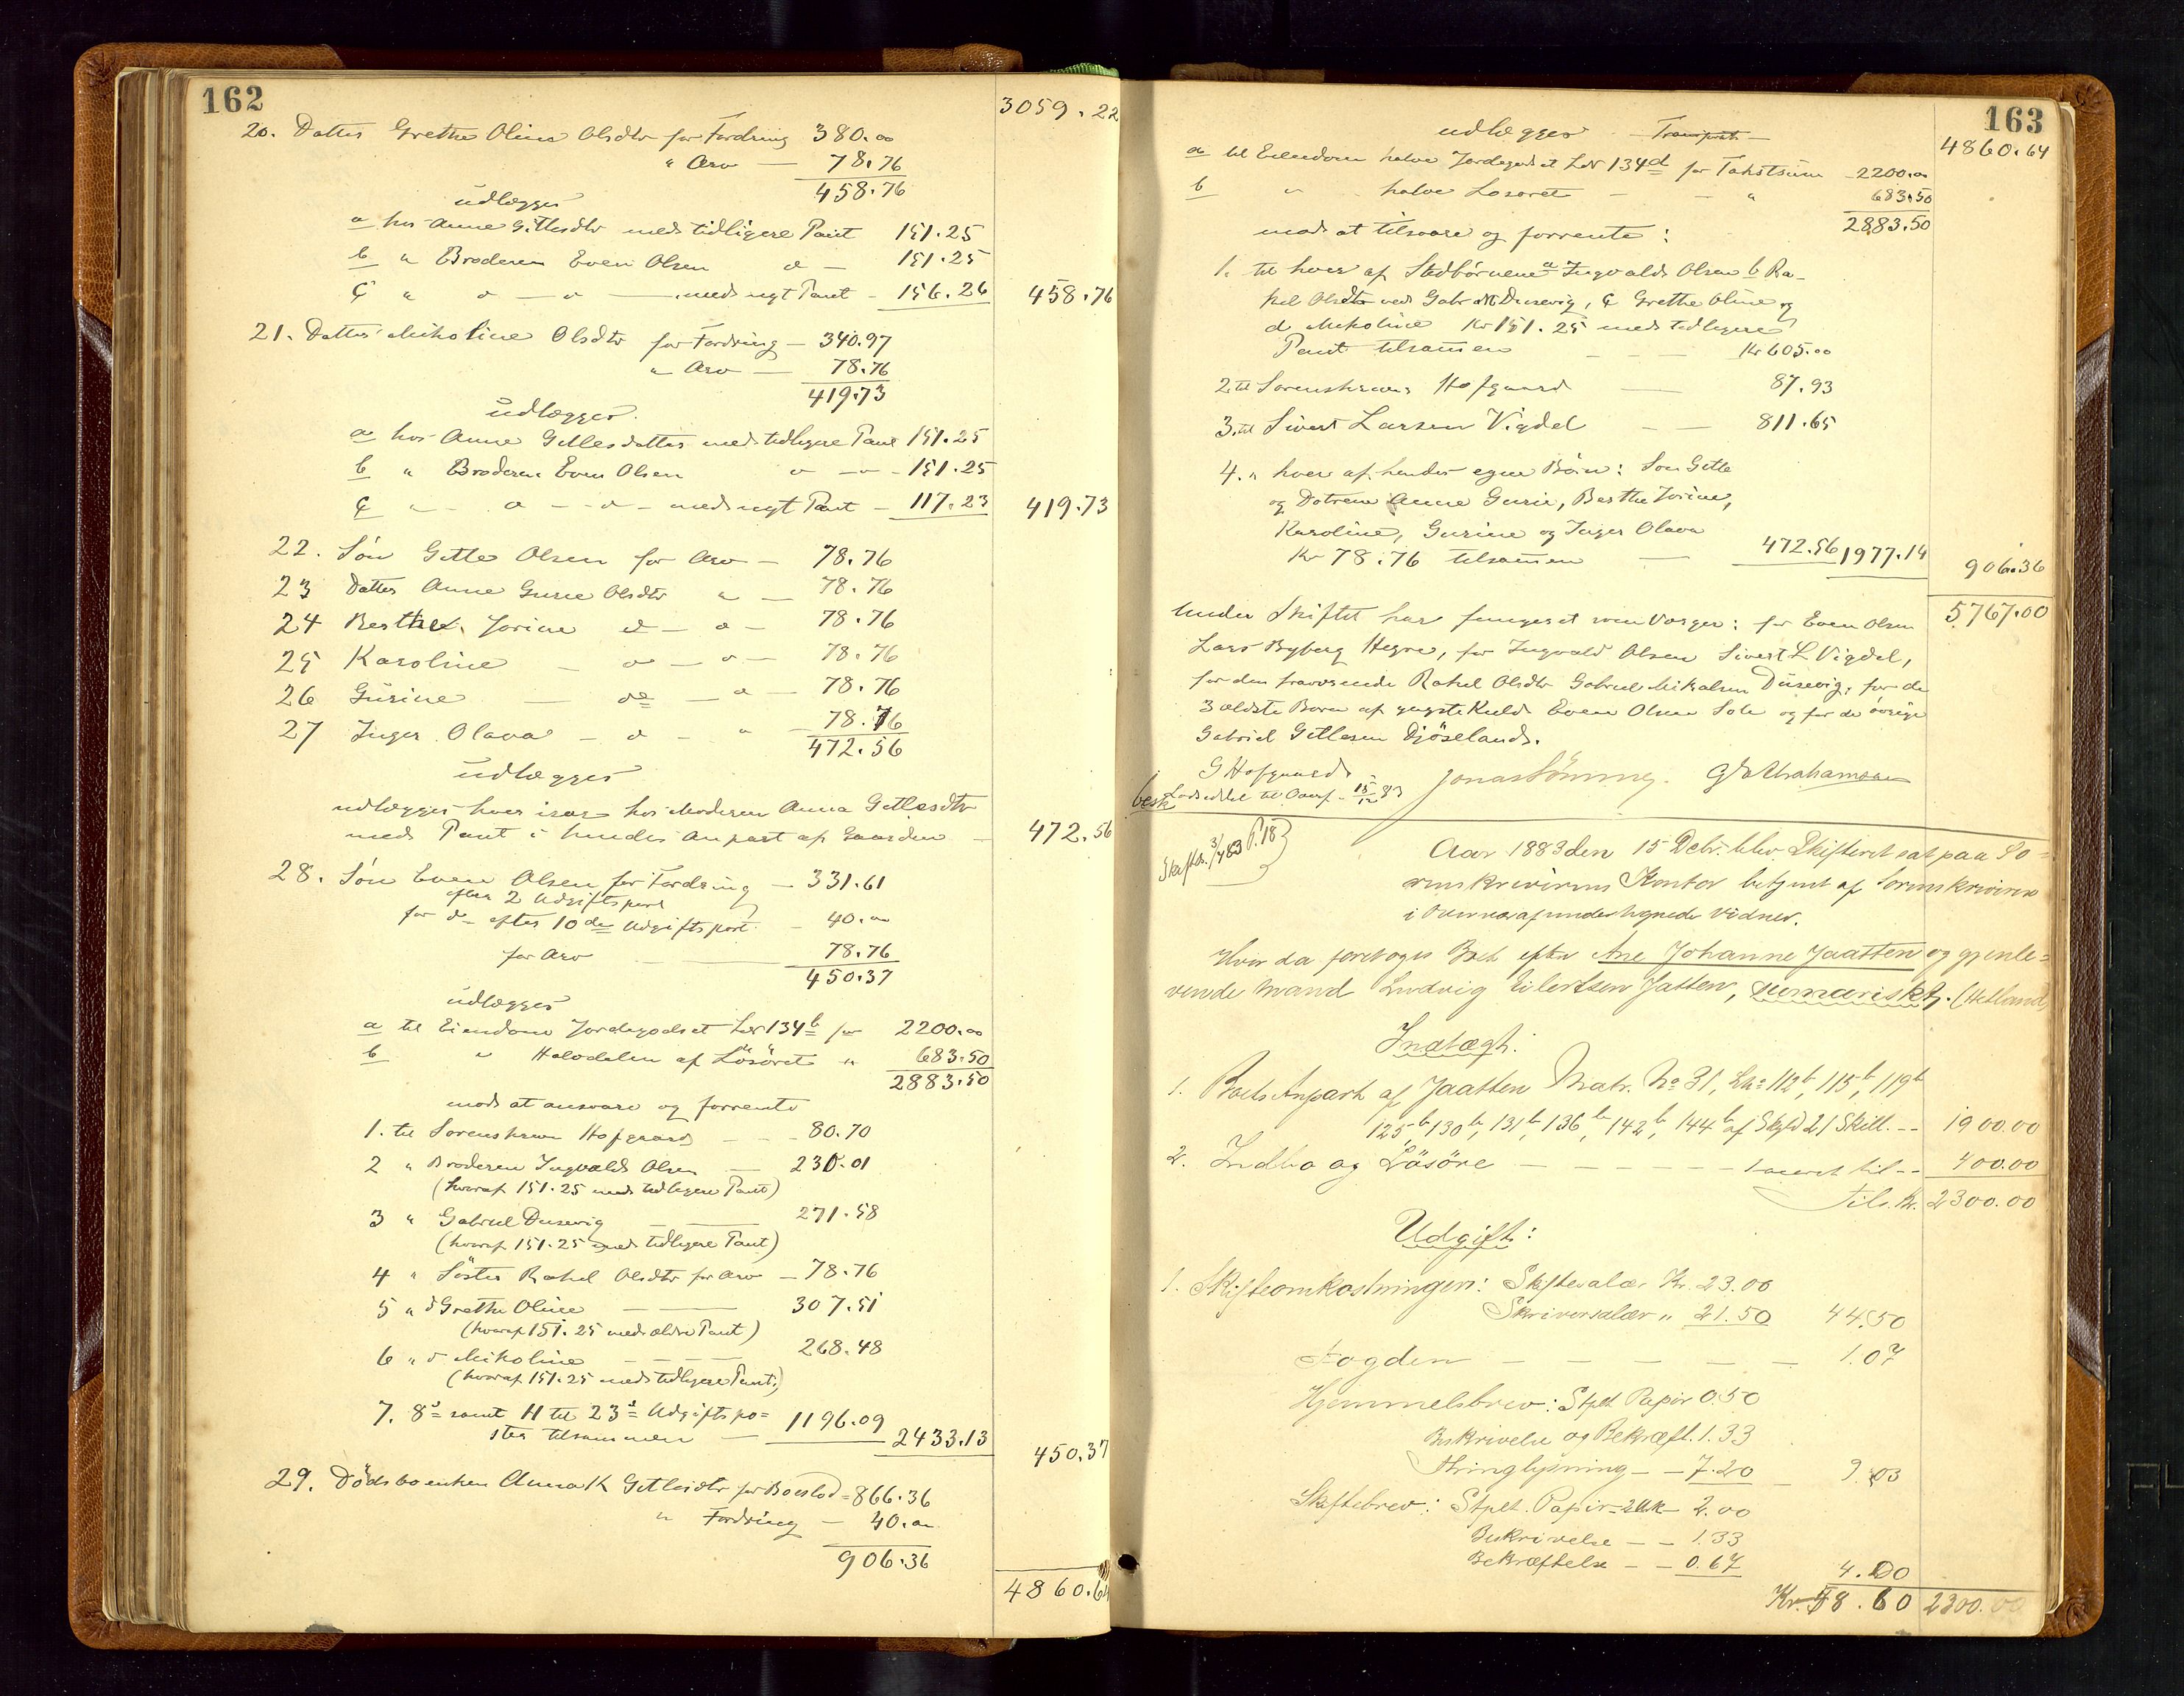 162
3059.22
20. Datter Grethe Oline Olsdtr for Fordring 380.00
" Arv — 78.76
458.76
udlægges
a hos Anne Gitlesdtr med tidligere Pant 151.25
b " Broderen Even Olsen d — 151.25
c " d — d — med nyt Pant - 156.26 458.76
21. Datter Mikoline Olsdtr for Fordring — 340.97
" Arv — 78.76
419.73
udlægges
a hos Anne Gitlesdatter med tidligere Pant 151.25
b " Broderen Even Olsen d — 151.25
c " d — d — med nyt Pant — 117.23 419.73
22. Søn Gitle Olsen for Arv — 78.76
23 Datter Anne Gurie Olsdtr " — 78.76
24 Berthe Jorine d — d — 78.76
25 Karoline — d — d — 78.76
26 Gurine — do — d — 78.76
27 Inger Olava — d — " — 78.76
472.56
udlægges
udlægges hver især hos Moderen Anna Gitlesdtr
med Pant i hendes Anpart af Gaarden — 472.56
28. Søn Even Olsen for Fordring — 331.61
efter 2 Udgiftspost
for do efter 10de Udgiftspost — 40.00
for Arv — 78.76
450.37
udlægges
a til Eiendom Jordegodset Lnr 134b for 2200.00
b " Halvdelen af Løsøret " 683.50
2883.50
mod at ansvare og forrente
1. til Sorenskriver Hofgaard — 80.70
2 " Broderen Ingvald Olsen — 230.01
(hvoraf 151.25 med tidligere Pant)
3 " Gabriel Dusevig — 271.58
(hvoraf 151.25 med tidligere Pant)
4 " Søster Rakel Olsdtr for Arv — 78.76
5 " d Grethe Oline — 307.51
(hvoraf 151.25 med ældre Pant)
6 " d Mikoline — 268.48
(hvoraf 151.25 med tidligere Pant)
7. 8de samt 11 til 23de Udgiftspo=
ster tilsammen — 1196.09 2433.13 450.37
29. Dødsboenken Anna K Gitlesdtr for Boeslod = 866.36
" Fordring — 40.00
906.36
4860.64
163
udlægges — Transport — 4860.64
a til Eiendom halve Jordegodset Lnr 134d for Takstsum 2200.00
b " halve Løsøret — " 683.50
2883.50
mod at tilsvare og forrente:
1. til hver af Stedbørnene a Ingvald Olsen b Ra-
kel Olsdtr ved Gabr. M. Dusevig, c Grethe Oline og
d Mikoline Kr 151.25 med tidligere
Pant tilsammen — Kr 605.00
2 til Sorenskriver Hofgaard — 87.93
3. til Sivert Larsen Vigdel — 811.65
4. " hver af hendes egne Børn: Søn Gitle
og Døtrene Anne Gurie, Berthe Jorine,
Karoline, Gurine og Inger Olava
Kr 78.76 tilsammen — 472.56 1977.14 906.36
5767.00
Under Skiftet har fungeret som Værger: for Even Olsen
Lars Byberg Hegre, for Ingvald Olsen Sivert L Vigdel,
for den fraværende Rakel Olsdtr Gabriel Mikalsen Dusevig, for de
3 ældste Børn af yngste Kuld Even Olsen Sole og for de øvrige
Gabriel Gitlesen Djøseland.
G Hofgaard Jonas Sømme. G B Abrahamsen
besk. Lodseddel til 15/12 83
Skiftes. 3/7 83 P. 18
Aar 1883 den 15 Debr. blev Skifteret sat paa So=
renskriverens Kontor betjent af Sorenskriveren
i Overvær af undertegnede Vidner.
Hvor da foretoges Boet efter Ane Johanne Jaatten og gjenle=
vende Mand Ludvig Eilertsen Jatten, summarisk. (Hetland)
Indtægt.
1. Boets Anpart af Jaatten Matr. No 31, Lno 112b, 115b, 119b
125b, 130b, 131b, 136b, 142b, 144b af Skyld 21 Skill. — 1900.00
2. Indbo og Løsøre — taxeret til — 400.00
Tils. Kr. 2300.00
Udgift:
1. Skifteomkostninger: Skiftesalær Kr. 23.00
Skriversalær " 21.50 44.50
Fogden — 1.07
Hjemmelsbrev: Stplt Papir 0.50
Beskrivelse og Bekræft. 1.33
Thinglysning — 7.20 — 9.03
Skiftebrev: Stplt. Papir — 2.00
Beskrivelse — 1.33
Bekræftelse — 0.67 4.00
Kr. 58.60 2300.00